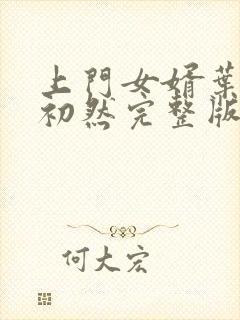 上門女婿葉
初然完整版
何大宏